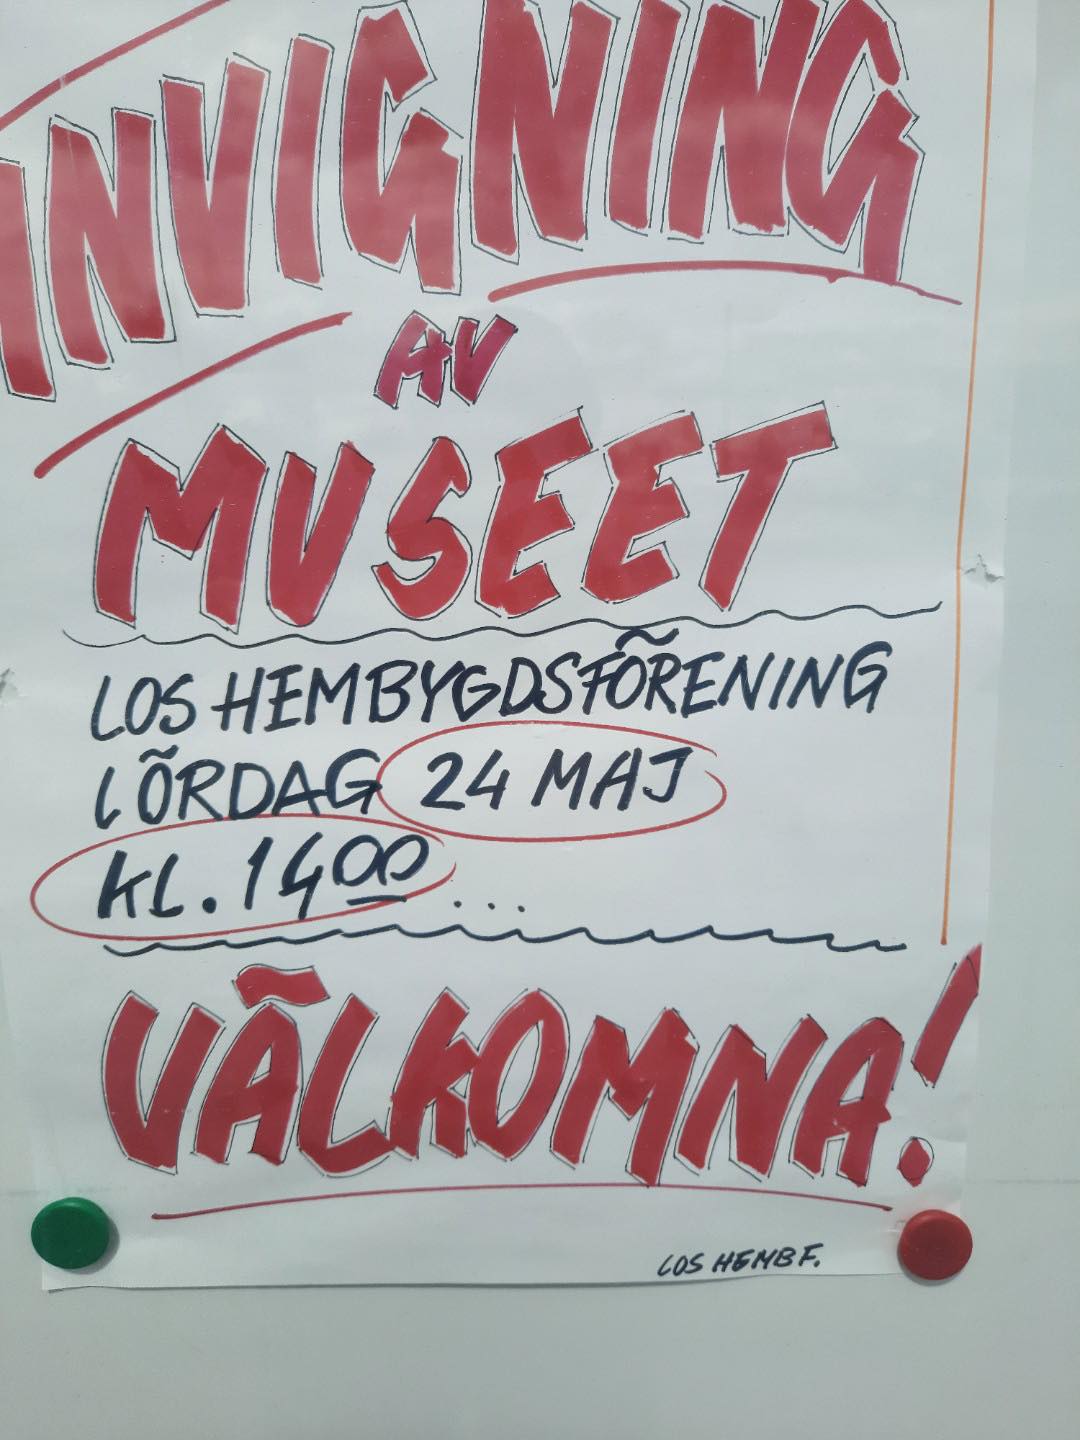 INVIGNING
AV
MUSEET
LOS HEMBYGDSFÖRENING
LÖRDAG 24 MAJ
KL. 1400 ...
VÄLKOMNA!
LOS HEMBF.